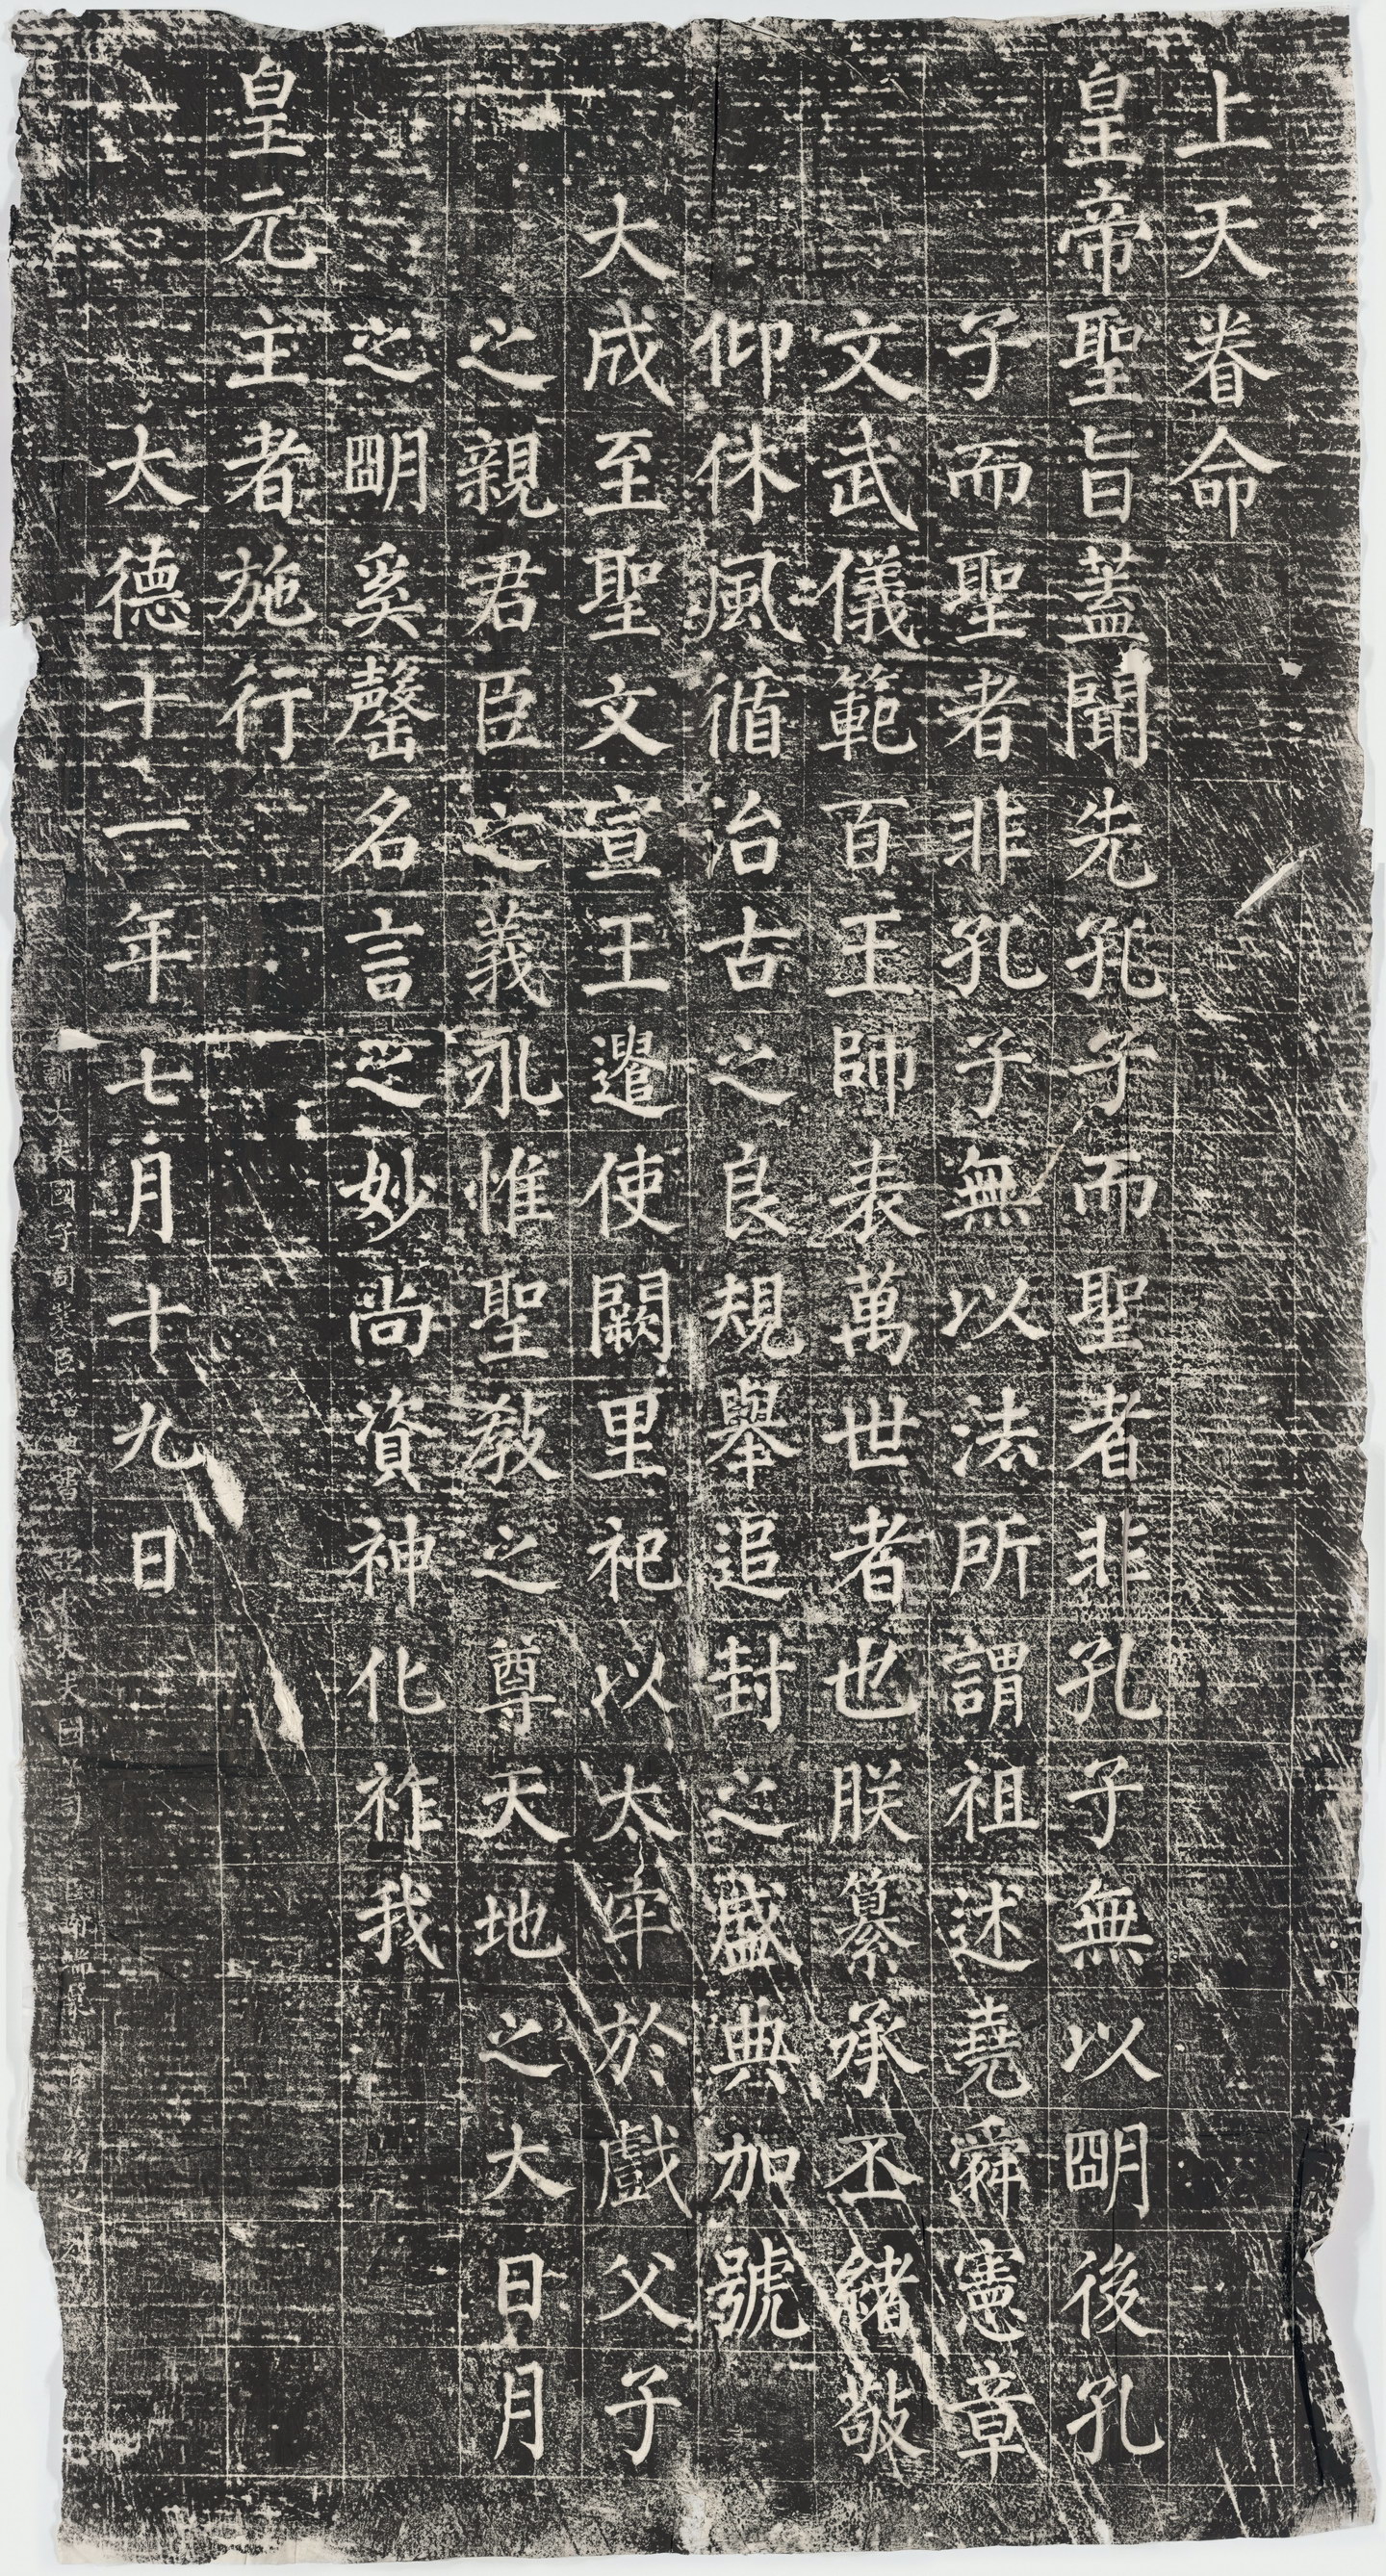 上天眷命
皇帝聖旨蓋聞先孔子而聖者非孔子無以朙後孔
子而聖者非孔子無以法所謂祖述堯舜憲章
文武儀範百王師表萬世者也朕纂承丕緒敬
仰休風循治古之良規舉追封之盛典加號
大成至聖文宣王遣使闕里祀以太牢於戲父子
之親君臣之義永惟聖教之尊天地之大日月
之朙奚罄名言之妙尚資神化祚我
皇元主者施行
大德十一年七月十九日
大夫國子司業臣